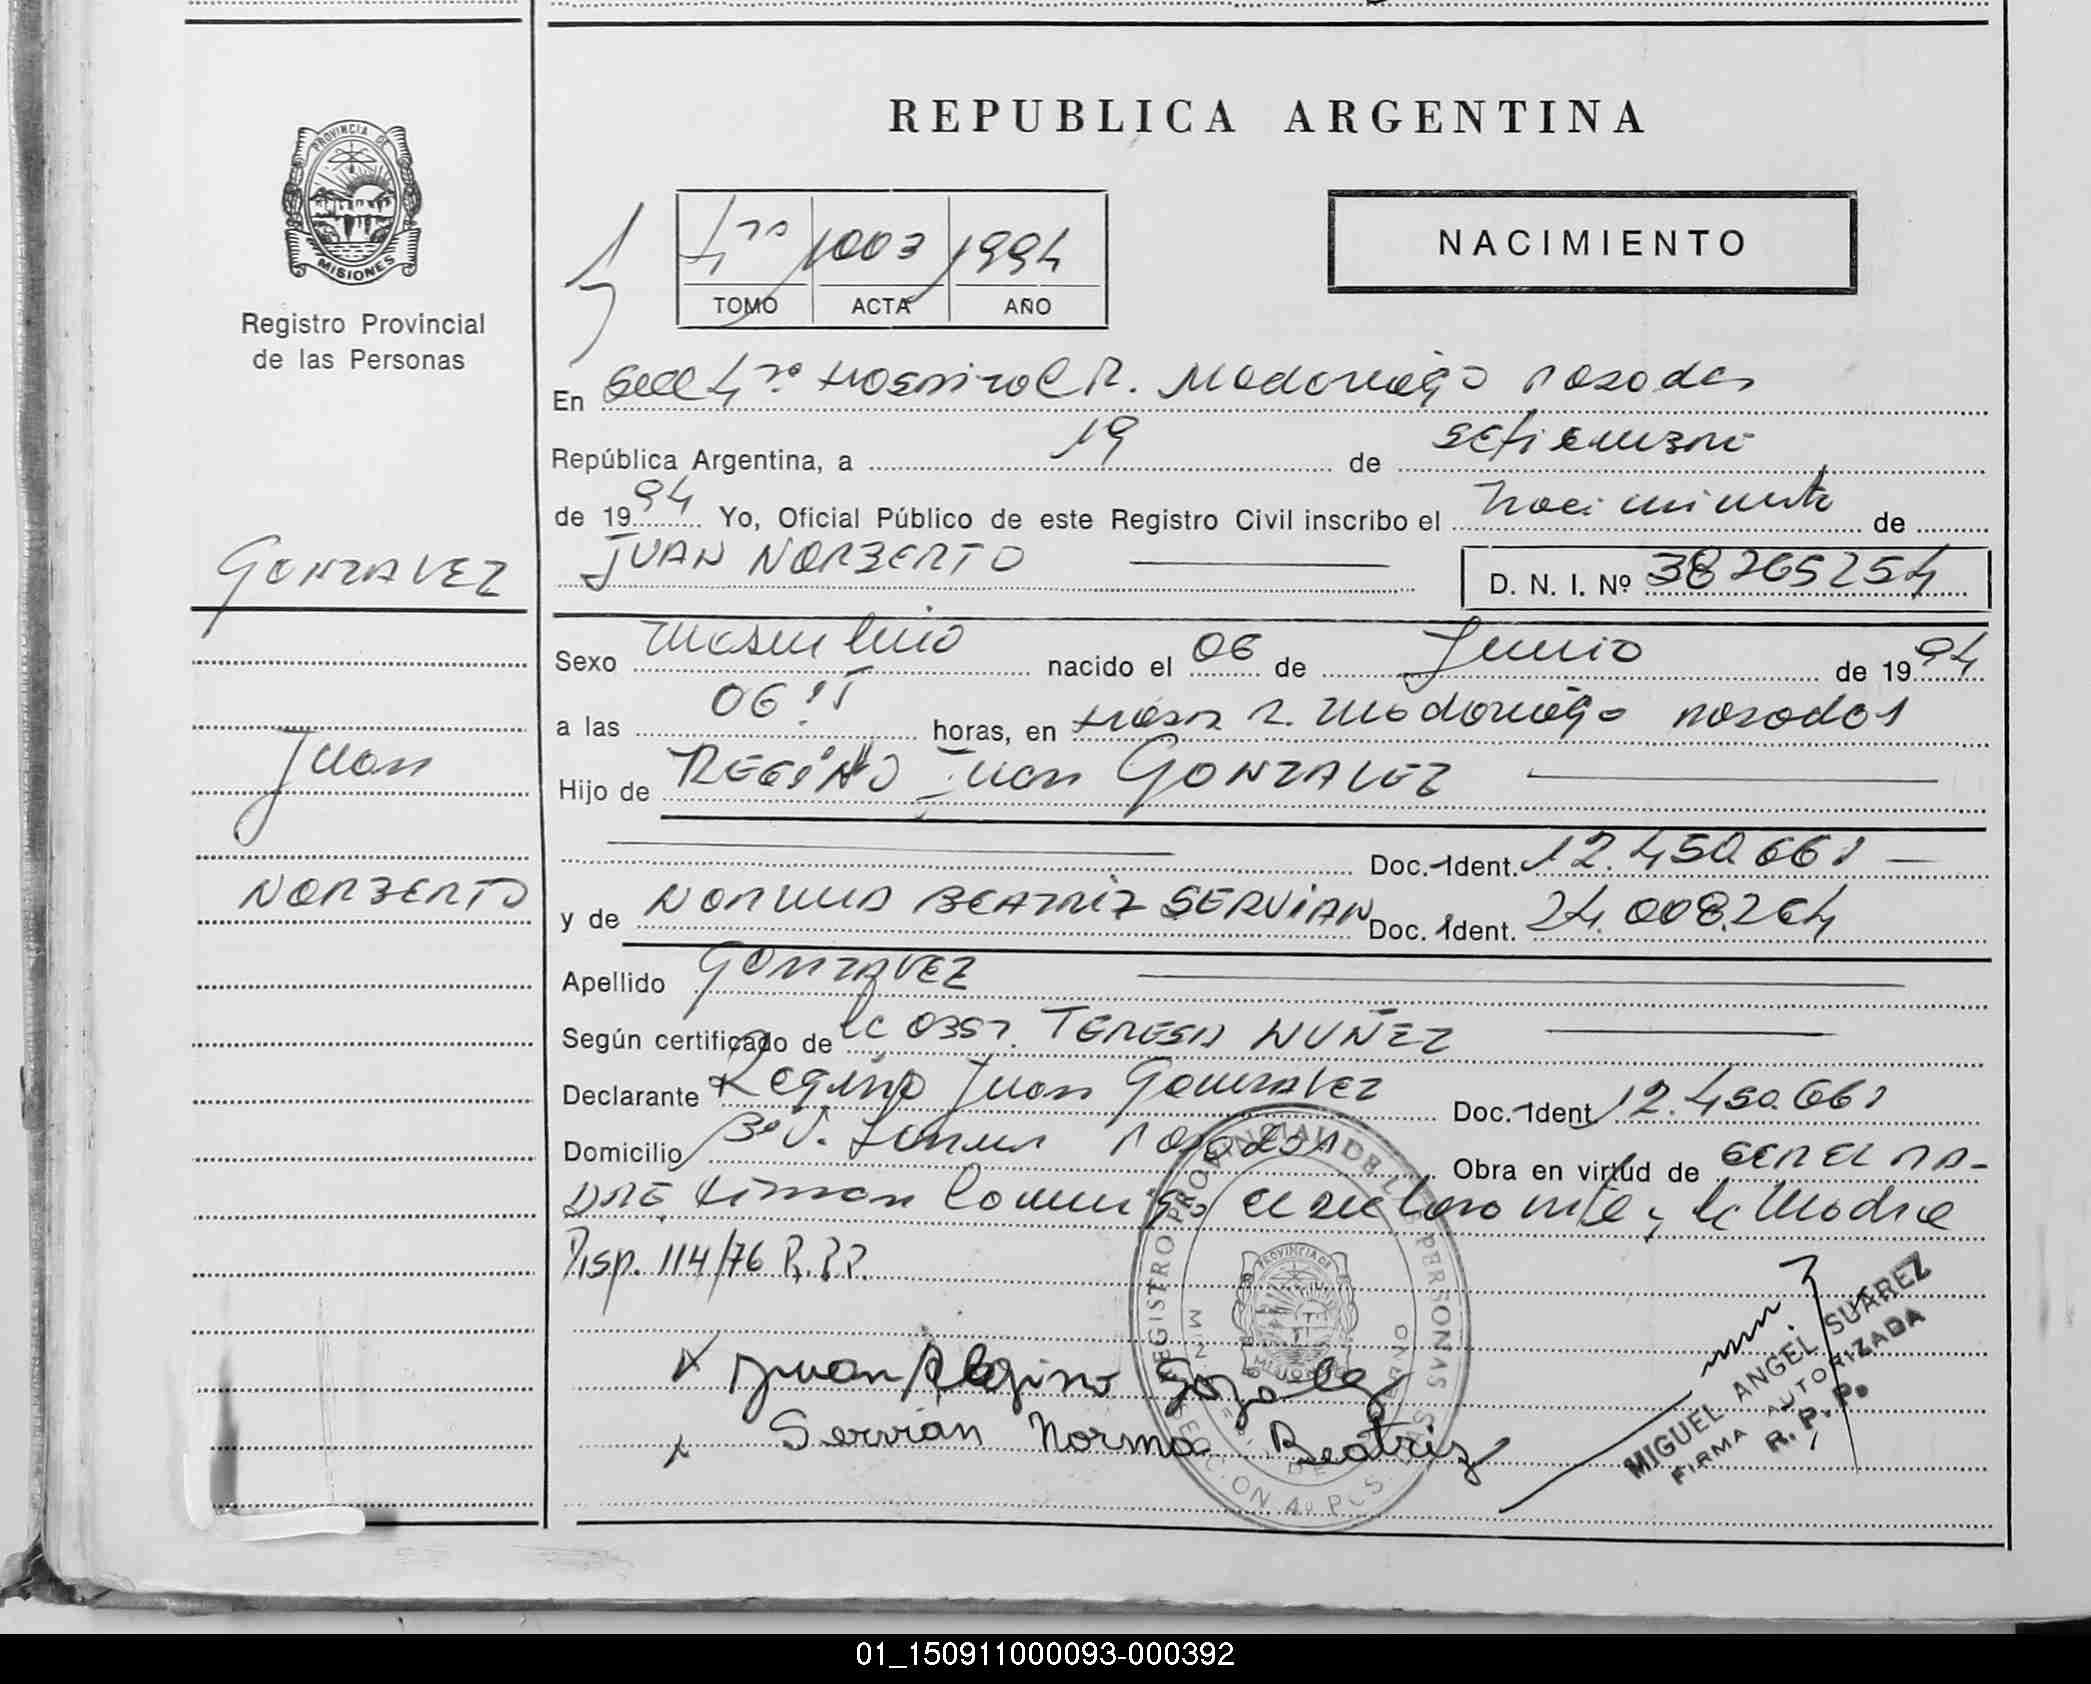 REPUBLICA ARGENTINA
PROVINCIA DE
MISIONES
Registro Provincial
de las Personas
4to 1003 1994
TOMO ACTA AÑO
NACIMIENTO
En Secc 4ta. Hospital R. Madariaga Posadas
República Argentina, a 19 de Setiembre
de 1994 Yo, Oficial Público de este Registro Civil inscribo el Nacimiento de
JUAN NORBERTO D. N. I. Nº 38265254
GONZALEZ
Juan
NORBERTO
Sexo Masculino nacido el 06 de Junio de 1994
a las 06: horas, en Hosp R. Madariaga Posadas
Hijo de REGINO Juan GONZALEZ
Doc. Ident. 12.450.661
y de NORMA BEATRIZ SERVIAN Doc. Ident. 24.008.264
Apellido GONZALEZ
Según certificado de la Obst. TERESA NUÑEZ
Declarante Regino Juan Gonzalez Doc. Ident 12.450.661
Domicilio Posadas Obra en virtud de SER EL PA-
DRE. Firman Conmigo el declarante y la Madre
Disp. 114/76 R.P.P.
Juan Regino Gozalez
Servian Norma Beatriz
REGISTRO PROVINCIAL DE LAS PERSONAS
PROVINCIA DE
MISIONES
SECCION 4º PCS.
MIGUEL ANGEL SUAREZ
FIRMA AUTORIZADA
R. P. P.
01_150911000093-000392